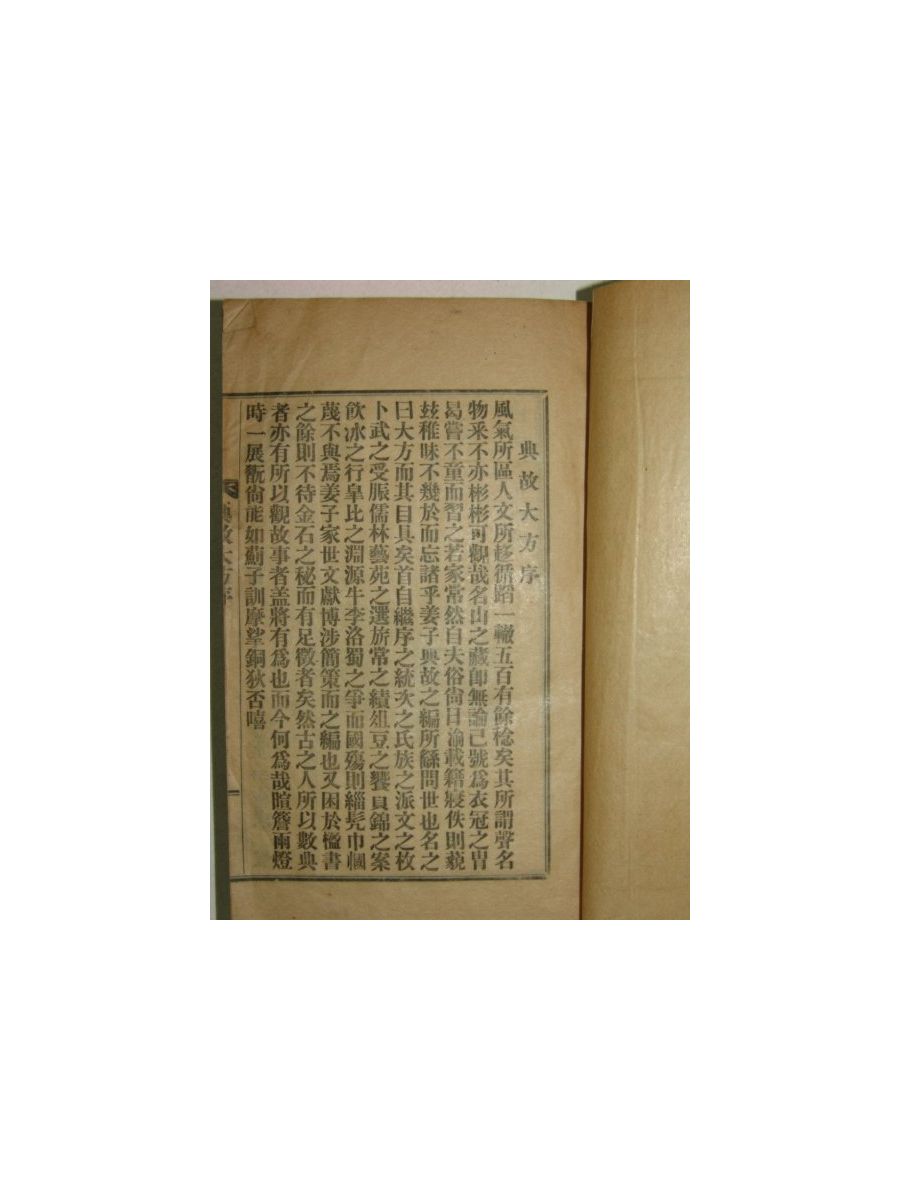 典故大方序
風氣所區人文所移循蹈一轍五百有餘稔矣其所謂聲名
物采不亦彬彬可觀哉名山之藏卽無論已號爲衣冠之冑
曷嘗不童而習之若家常然自夫俗尙日渝載籍寢佚則藐
玆稚昧不幾於而忘諸乎姜子典故之編所繇問世也名之
曰大方而其目具矣首自繼序之統次之氏族之派文之枚
卜武之受脤儒林藝苑之選旂常之績俎豆之饗貝錦之案
飮冰之行皐比之淵源牛李洛蜀之爭而國殤則緇髡巾幗
蔑不與焉姜子家世文獻博涉簡策而之編也又困於檻書
之餘則不待金石之秘而有足徵者矣然古之人所以數典
者亦有所以觀故事者盖將有爲也而今何爲哉暄簷雨燈
時一展翫尙能如薊子訓摩挲銅狄否嘻
典故大方序